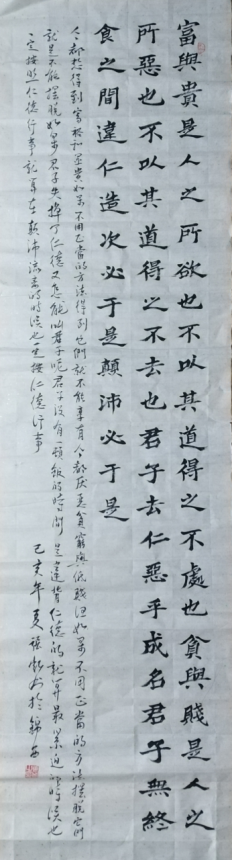 富與貴是人之所欲也不以其道得之不處也貧與賤是人之
所惡也不以其道得之不去也君子去仁惡乎成名君子無終
食之間違仁造次必于是顛沛必于是
人人都想得到富裕和显贵如果不用正當的方法得到它們就不能享有人人都厌恶貧窮與低賤但如果不用正當的方法擺脫它們
就是不能擺脫如果君子失掉了仁德又怎能叫君子呢君子没有一頓飯的時間是違背仁德的就算最紧迫的時候也
一定按照仁德行事就算在颠沛流离的時候也一定按仁德行事
己亥年夏